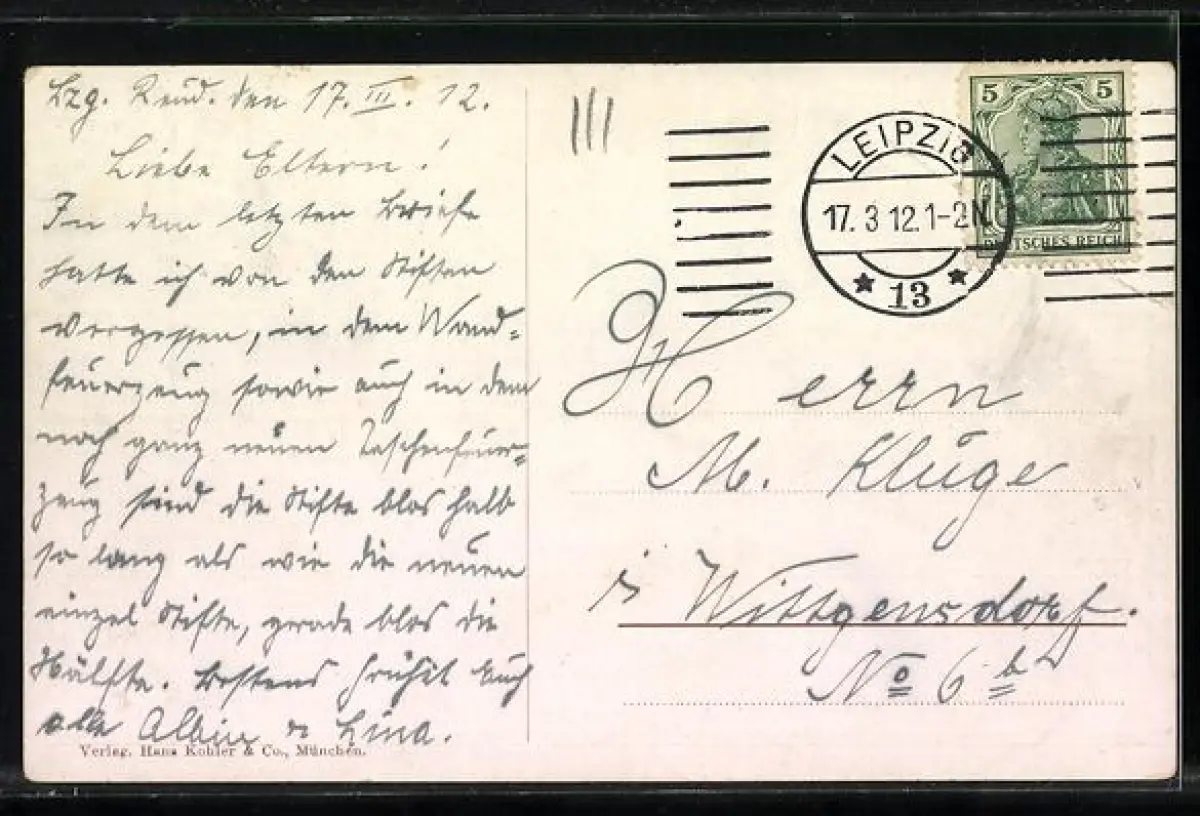 Lzg. Reud. den 17. III. 12.
Liebe Eltern!
In dem letzten Briefe
hatte ich von den Stiften
vergessen, in dem Wand-
feuerzeug sowie auch in dem
noch ganz neuen Taschenfeuer-
zeug sind die Stifte blos halb
so lang als wie die neuen
einzel Stifte, gerade blos die
Hälfte. Bestens grüßt Euch
alle Albin u Lina.
Verlag. Hans Kohler & Co., München.
LEIPZIG
17. 3 12. 1-2N.
13
5 5
DEUTSCHES REICH
Herrn
M. Kluge
Wittgensdorf.
No 6 b